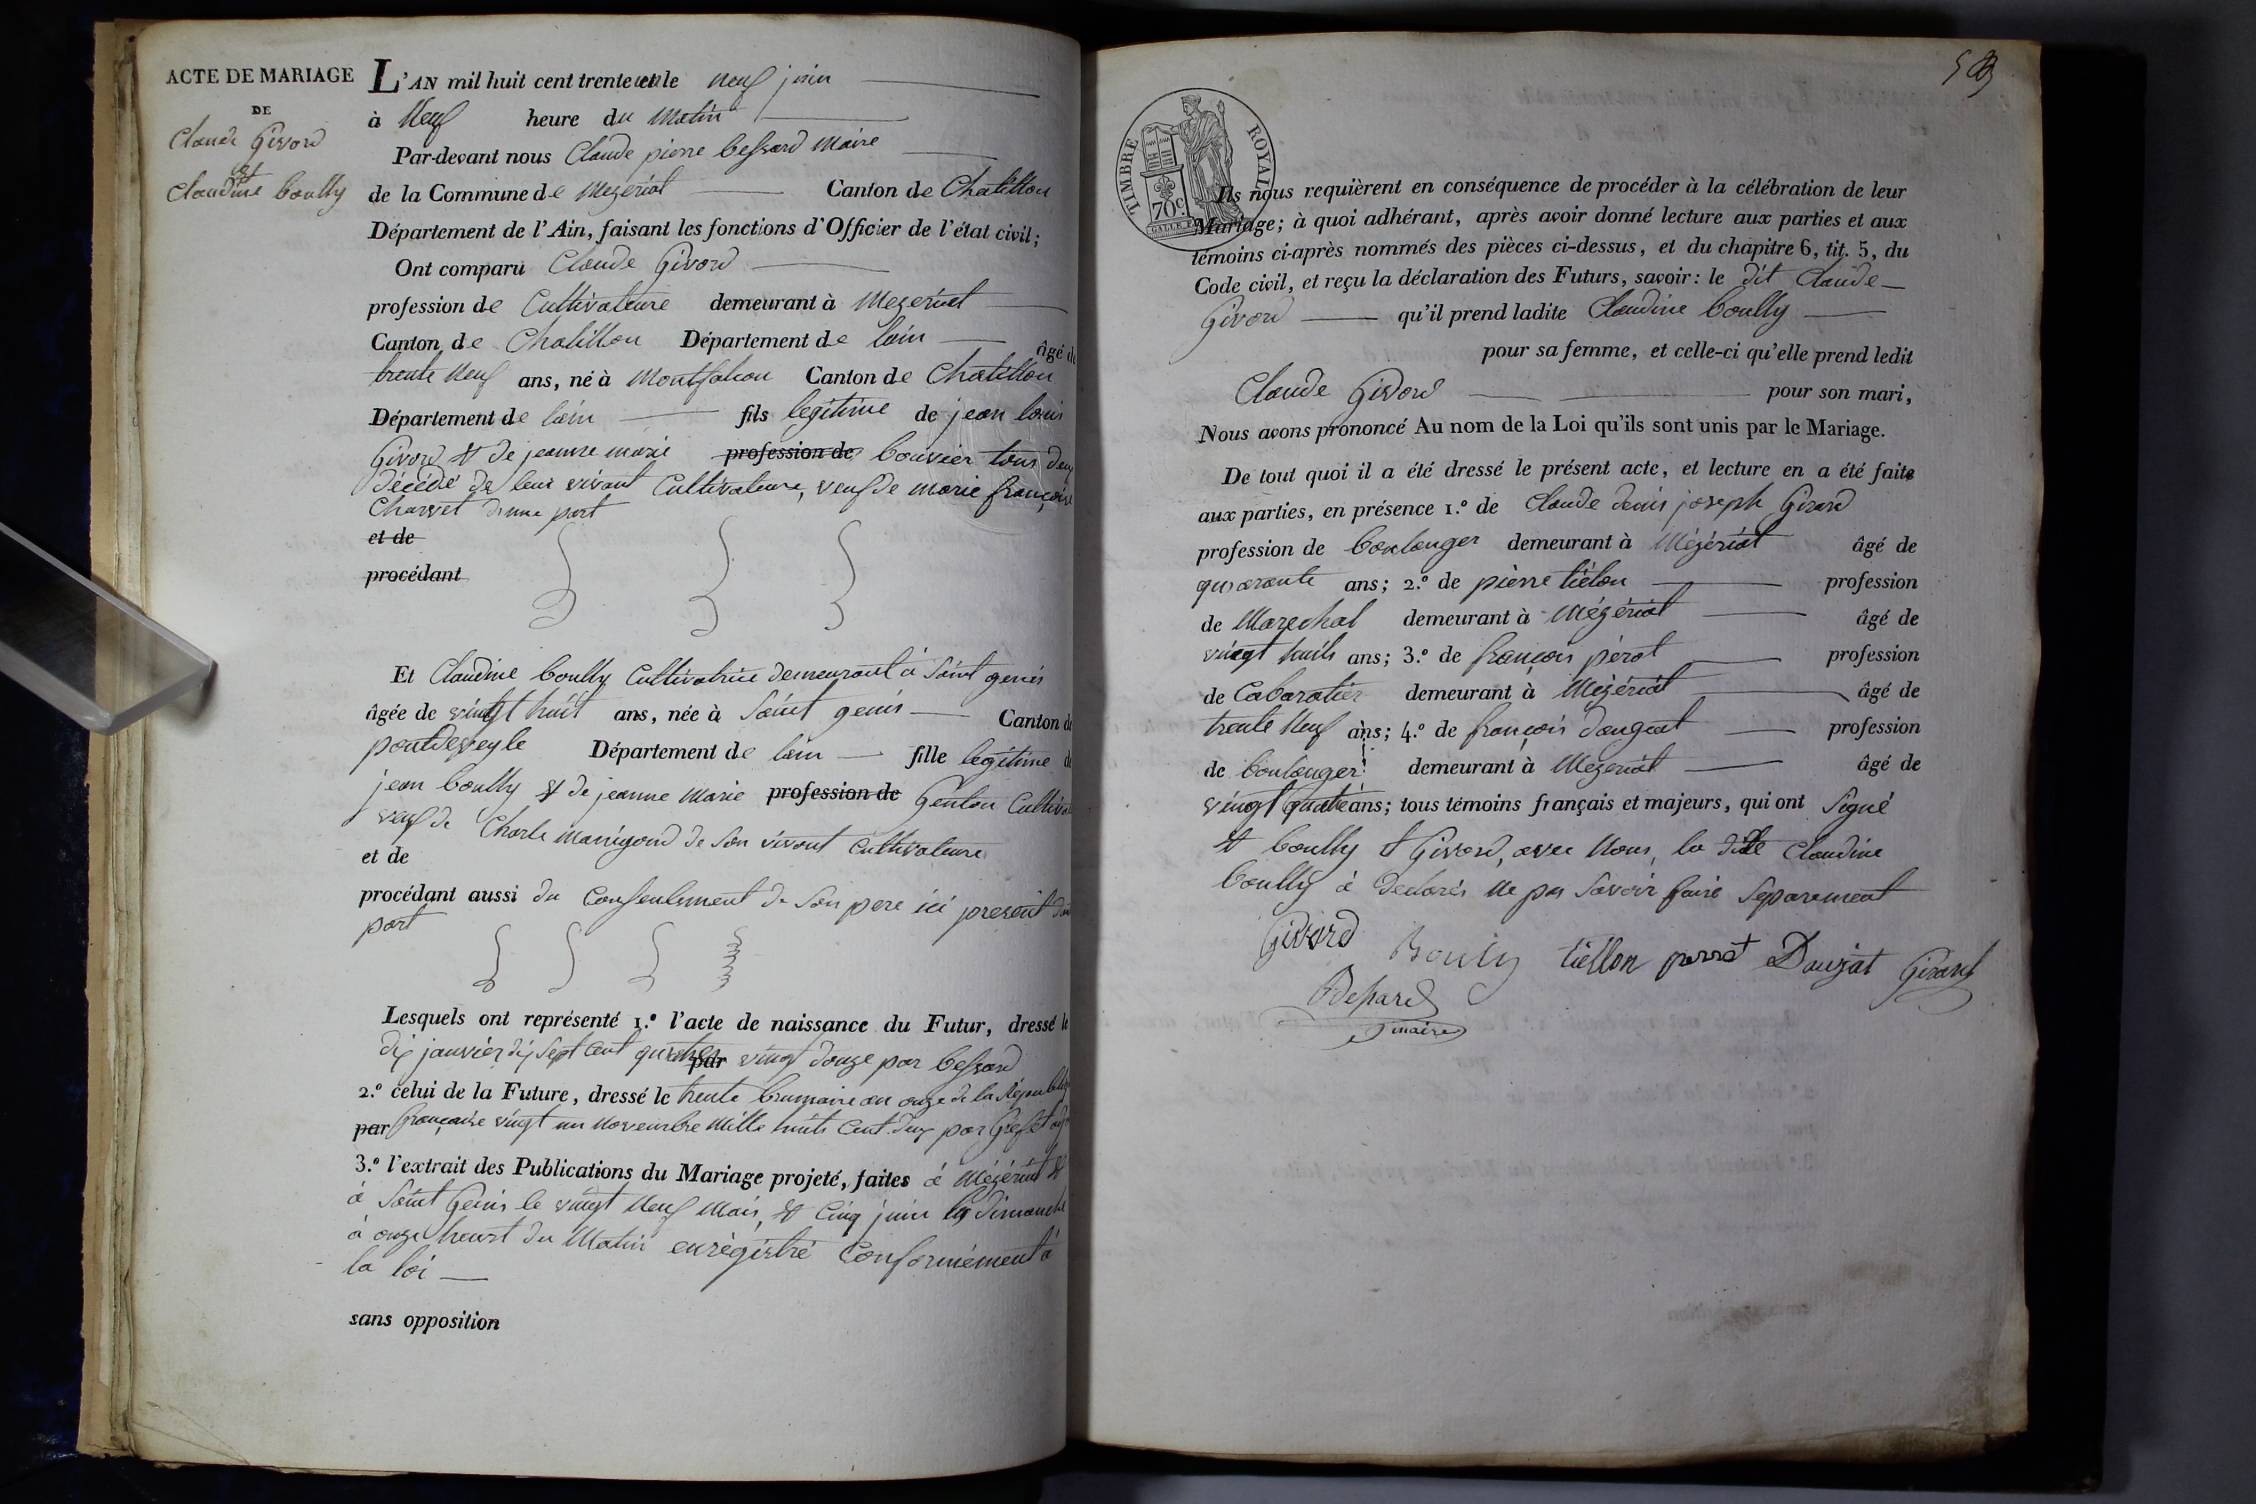 ACTE DE MARIAGE
DE
Claude Givord
et
Claudine boully
L'AN mil huit cent trente et le neuf juin
à Neuf heure du Matin
Par-devant nous Claude pierre bessard Maire
de la Commune de Mezeriat Canton de Chatillon
Département de l'Ain, faisant les fonctions d'Officier de l'état civil;
Ont comparu Claude Givord
profession de Cultivateure demeurant à Mezeriat
Canton de Chatillon Département de lain âgé de
trente Neuf ans, né à Montfalcon Canton de Chatillon
Département de lain fils legitime de jean louis
Givord et de jeanne marie profession de bouvier tous deux
décédé de leur vivant Cultivateure, veuf de marie françoise
Charvet d'une part
et de
procédant
Et Claudine boully Cultivatrice demeurant à Saint genis
âgée de vingt huit ans, née à Saint genis Canton de
pontdeveyle Département de lain fille legitime de
jean boully et de jeanne Marie profession de Genton
veuf de Charle de Son vivant Cultivateure
et de
procédant aussi du Consentement de Son pere ici present
part
Lesquels ont représenté 1.º l'acte de naissance du Futur, dressé le
dix janvier dix Sept Cent quatre par vingt douze par bessard
2.º celui de la Future, dressé le trente brumaire an onze de la
par française vingt un Novembre Mille huits Cent deux par
3.º l'extrait des Publications du Mariage projeté, faites à Mézériat et
à Saint Genis le vingt Neuf Mais, et Cinq juin dimanche
à onze heurs du Matin enregistré Conformément à
la loi
sans opposition
TIMBRE ROYAL
70c.
Ils nous requièrent en conséquence de procéder à la célébration de leur
Mariage; à quoi adhérant, après avoir donné lecture aux parties et aux
témoins ci-après nommés des pièces ci-dessus, et du chapitre 6, tit. 5, du
Code civil, et reçu la déclaration des Futurs, savoir: le dit Claude
Givord qu'il prend ladite Claudine boully
pour sa femme, et celle-ci qu'elle prend ledit
Claude Givord pour son mari,
Nous avons prononcé Au nom de la Loi qu'ils sont unis par le Mariage.
De tout quoi il a été dressé le présent acte, et lecture en a été faite
aux parties, en présence 1.º de Claude denis joseph Girard
profession de boulanger demeurant à Mézériat âgé de
quarante ans; 2.º de pierre tiélon profession
de Marechal demeurant à Mézériat âgé de
vingt huits ans; 3.º de françois pérat profession
de Cabaratier demeurant à Mézériat âgé de
trente Neuf ans; 4.º de françois daugeat profession
de boulanger demeurant à Mezeriat âgé de
vingt quatre ans; tous témoins français et majeurs, qui ont Signé
et boully et Givord, avec Nous, la dite Claudine
boully à declarés ne pas Savoir faire Separement
Givord Bouly tiellon perrat Daujat Girard
Bessard
maire